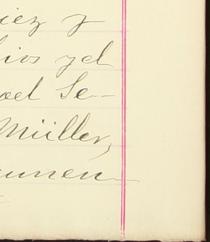 iez y
ios y el
oel Se-
Müller,
eunen